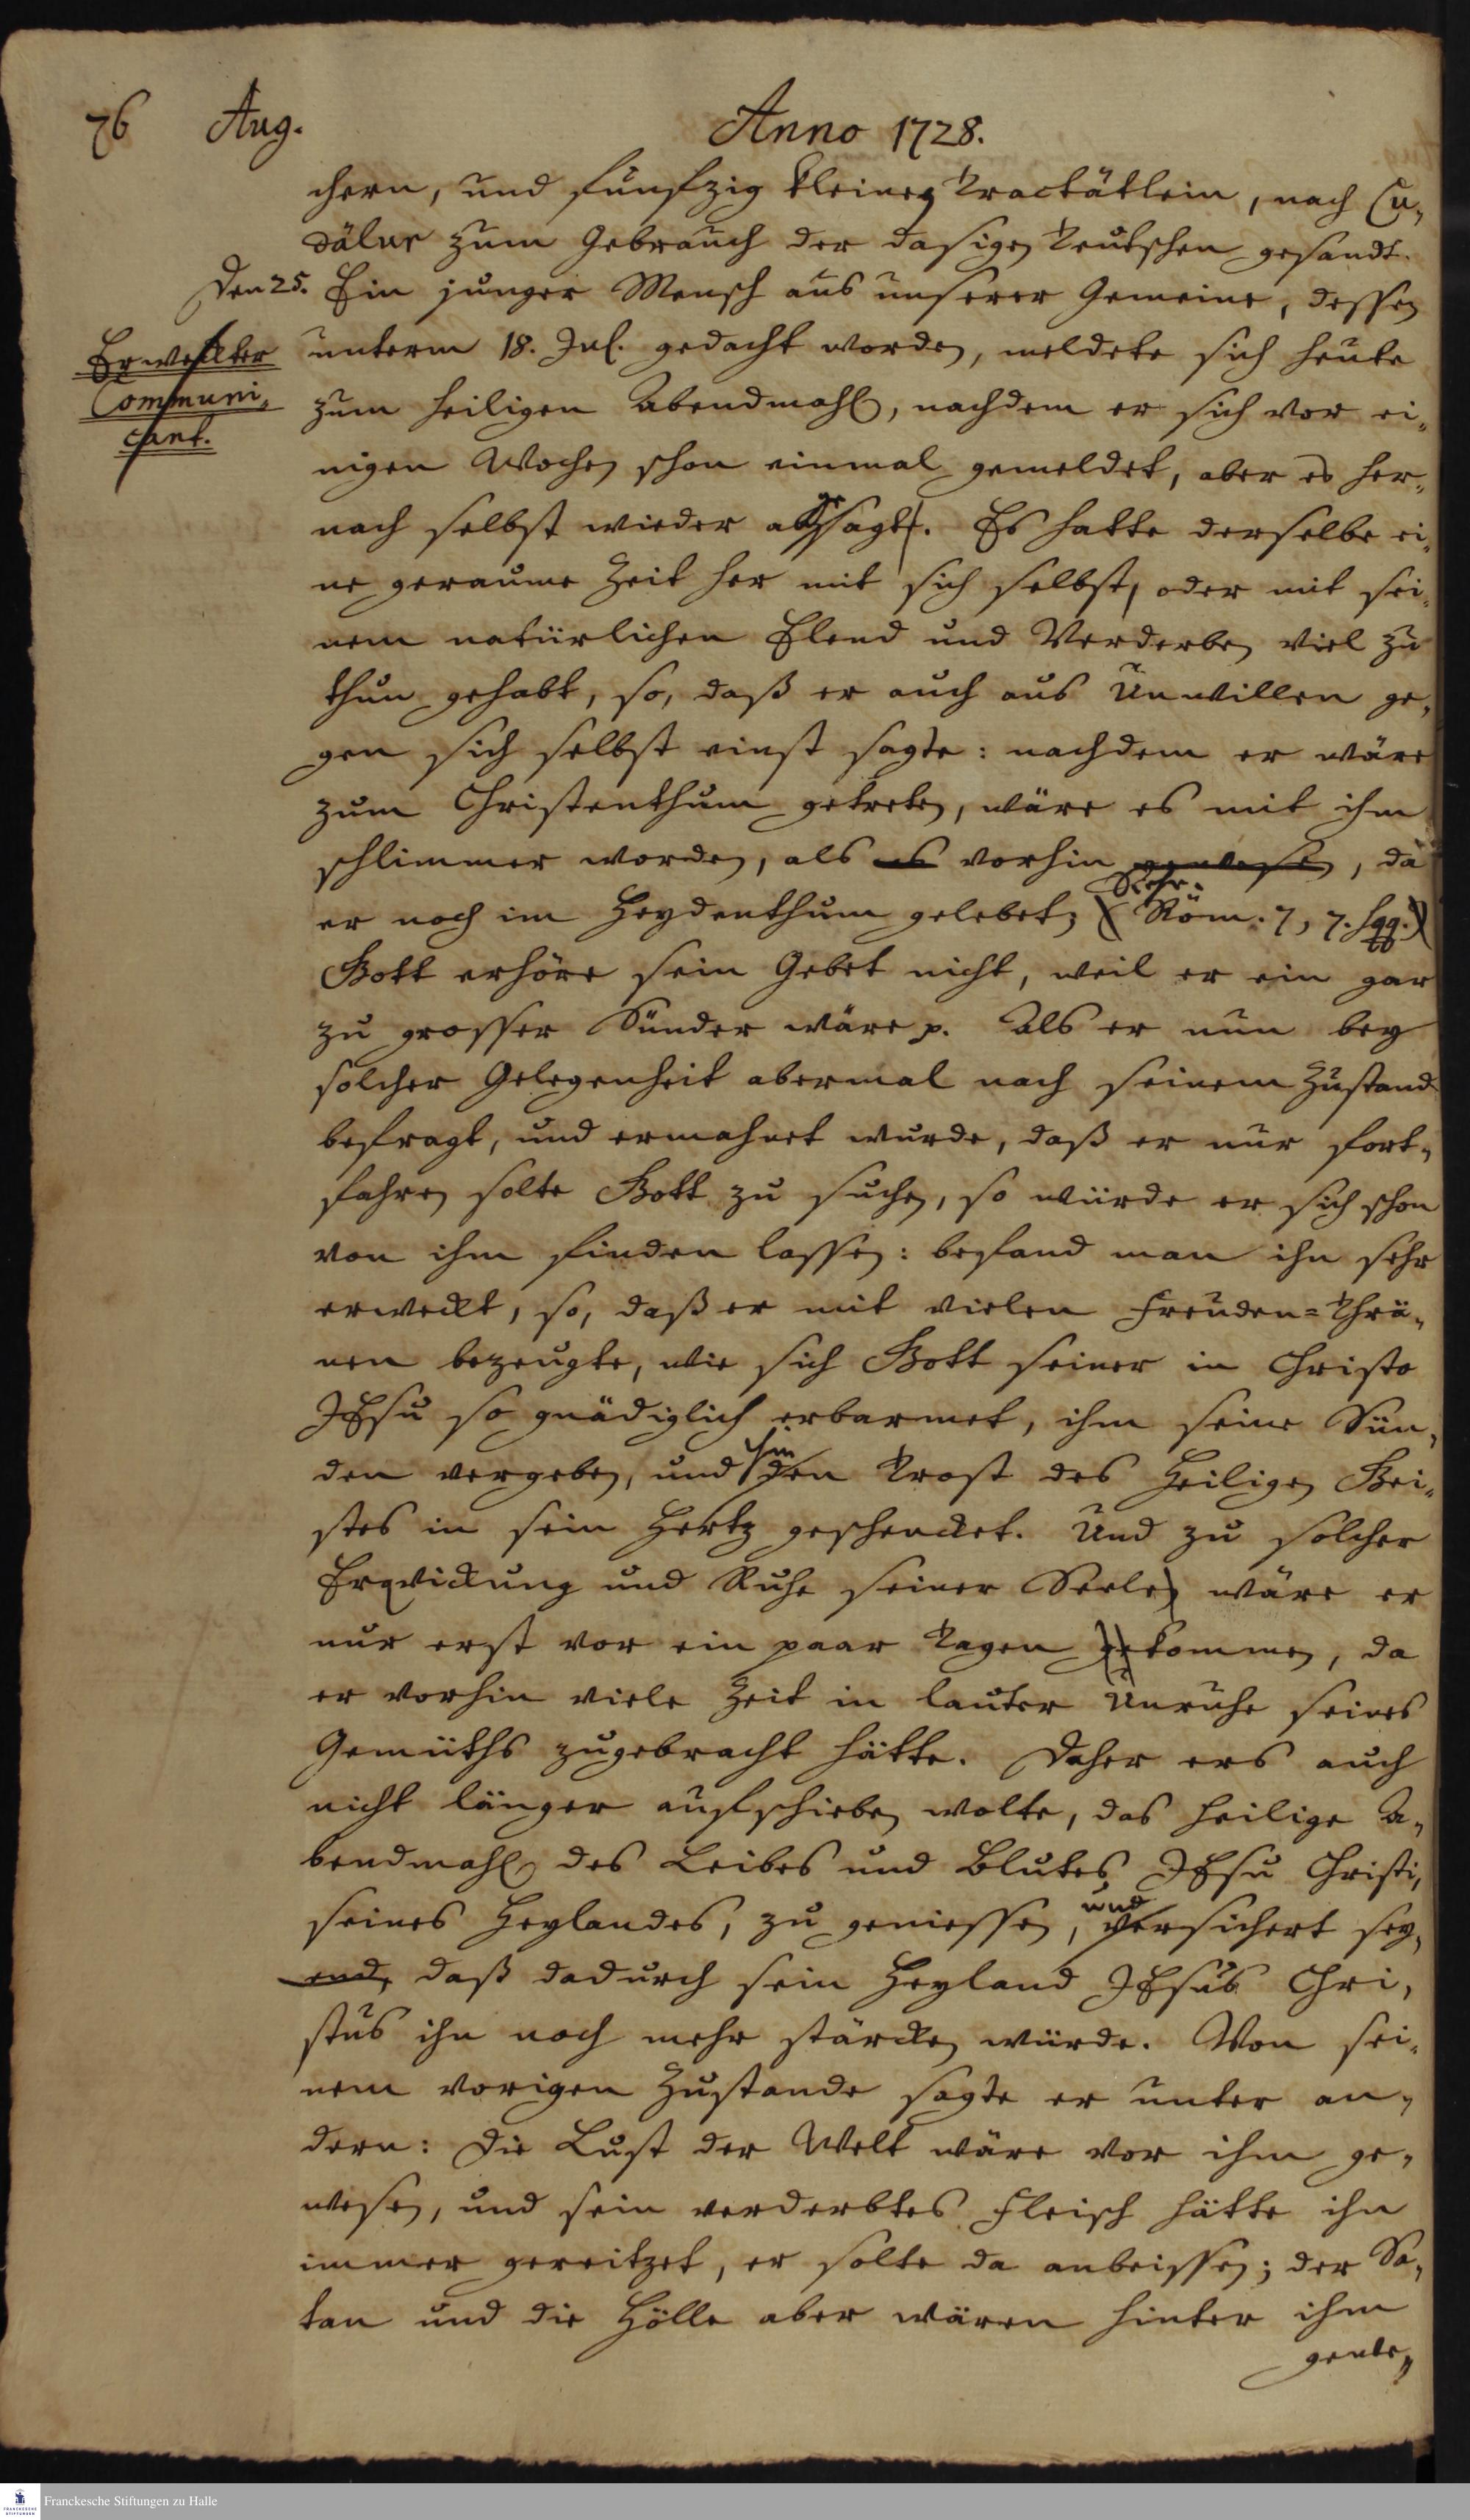 76 Aug. Anno 1728.
chern, und funfzig kleinen Tractätlein, nach Cu-
dälur zum Gebrauch der dasigen Teutschen gesandt.
Den 25. Ein junger Mensch aus unserer Gemeine, dessen
Erweckter
Communi-
cant.
unterm 18. Jul. gedacht worden, meldete sich heute
zum heiligen Abendmahl, nachdem er sich vor ei-
nigen Wochen schon einmal gemeldet, aber es her-
nach selbst wieder abgesagt. Es hatte derselbe ei-
ne geraume Zeit her mit sich selbst, oder mit sei-
nem natürlichen Elend und Verderben viel zu
thun gehabt, so, daß er auch aus Unwillen ge-
gen sich selbst einst sagte: nachdem er wäre
zum Christenthum getreten, wäre es mit ihm
schlimmer worden, als es vorhin gewesen, da
er noch im Heydenthum gelebet; (Röm. 7, 7. sqq.)
Gott erhöre sein Gebet nicht, weil er ein gar
zu grosser Sünder wäre p. Als er nun bey
solcher Gelegenheit abermal nach seinem Zustand
befragt, und ermahnet wurde, daß er nur fort-
fahren solte Gott zu suchen, so würde er sich schon
von ihm finden lassen: befand man ihn sehr
erweckt, so, daß er mit vielen Freuden=Thrä-
nen bezeugte, wie sich Gott seiner in Christo
JEsu so gnädiglich erbarmet, ihm seine Sün-
den vergeben, und den Trost des Heiligen Gei-
stes in sein Hertz geschencket. Und zu solcher
Erqvickung und Ruhe seiner Seelen wäre er
nur erst vor ein paar Tagen gekommen, da
er vorhin viele Zeit in lauter Unruhe seines
Gemüths zugebracht hätte. Daher ers auch
nicht länger aufschieben wolte, das heilige A-
bendmahl des Leibes und Blutes JEsu Christi,
seines Heylandes, zu geniessen, und versichert sey-
end, daß dadurch sein Heyland JEsus Chri-
stus ihn noch mehr stärcken würde. Von sei-
nem vorigen Zustande sagte er unter an-
dern: Die Lust der Welt wäre vor ihm ge-
wesen, und sein verderbtes Fleisch hätte ihn
immer gereitzet, er solte da anbeissen; der Sa-
tan und die Hölle aber wären hinter ihm
gewe-
Franckesche Stiftungen zu Halle